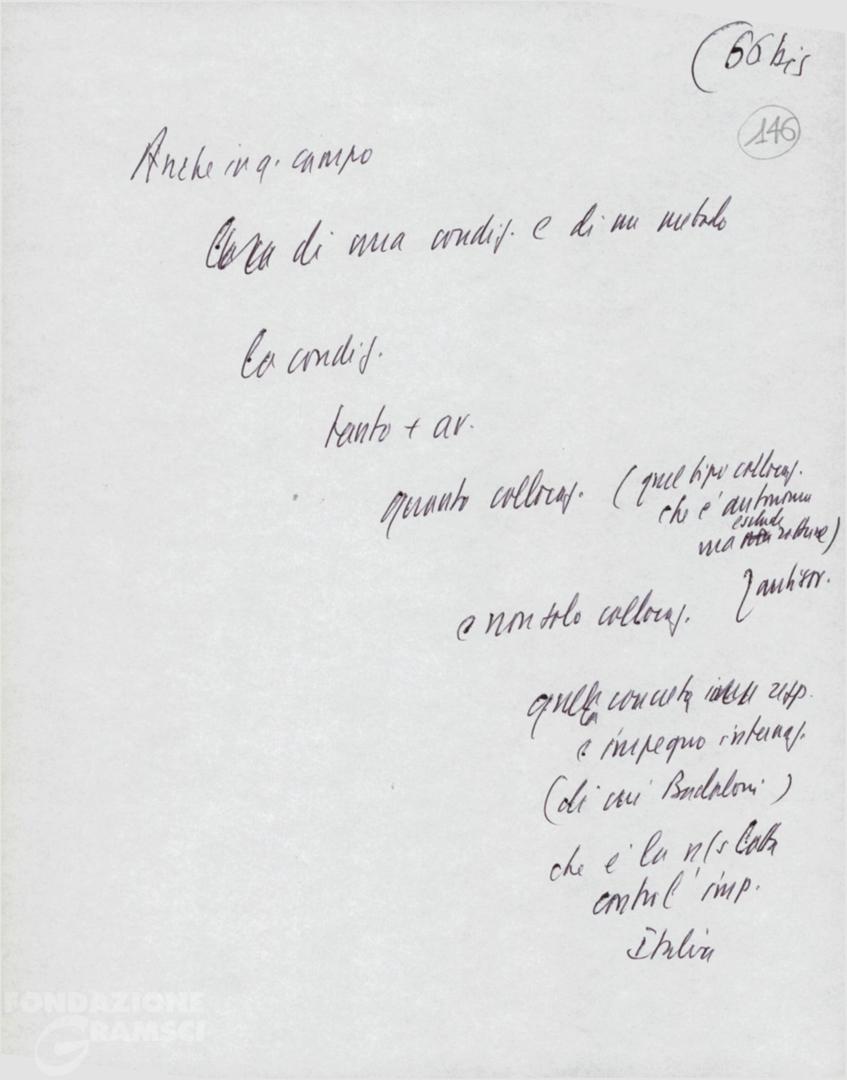 (66 bis
146
Anche in q. campo
di una condiz. e di un metodo
La condiz.
tanto + av.
quanto collocaz. (quel tipo collocaz.
che e' autonoma
esclude
ma rotture)
antisov.
e non solo collocaz.
quella concreta resp.
e impegno internaz.
(di cui Badaloni)
che e' la n/s lotta
contro l' imp.
Italia
FONDAZIONE
GRAMSCI